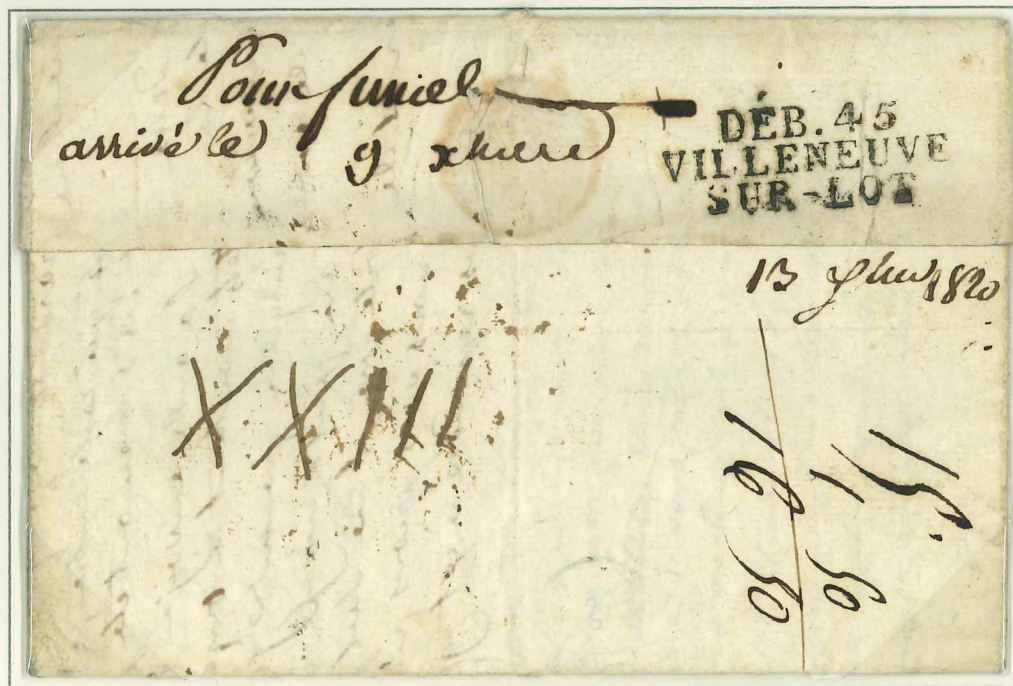 Pour fumel
arrivé le 9 xbre
DÉB. 45
VILLENEUVE
SUR-LOT
13 9bre 1820
XXIII